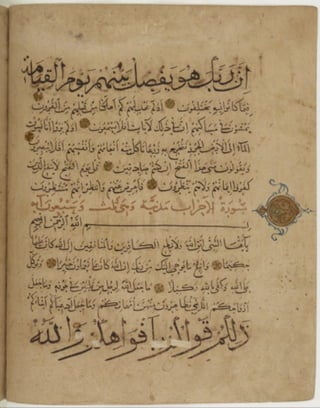 إن ربك هو يفصل بينهم يوم القيامة
فيما كانوا فيه يختلفون أولم يهد لهم كم أهلكنا من قبلهم من القرون
يمشون في مساكنهم إن في ذلك لآيات أفلا يسمعون أولم يروا أنا نسوق
الماء إلى الأرض الجرز فنخرج به زرعا تأكل منه أنعامهم وأنفسهم أفلا يبصرون
ويقولون متى هذا الفتح إن كنتم صادقين قل يوم الفتح لا ينفع الذين
كفروا إيمانهم ولا هم ينظرون فأعرض عنهم وانتظر إنهم منتظرون
سورة الأحزاب مدنية وهي ثلث وسبعون آية
بسم الله الرحمن الرحيم
يا أيها النبي اتق الله ولا تطع الكافرين والمنافقين إن الله كان عليما
حكيما واتبع ما يوحى إليك من ربك إن الله كان بما تعملون خبيرا وتوكل
على الله وكفى بالله وكيلا ما جعل الله لرجل من قلبين في جوفه وما جعل
أزواجكم اللائي تظاهرون منهن أمهاتكم وما جعل أدعياءكم أبناءكم
ذلكم قولكم بأفواهكم والله